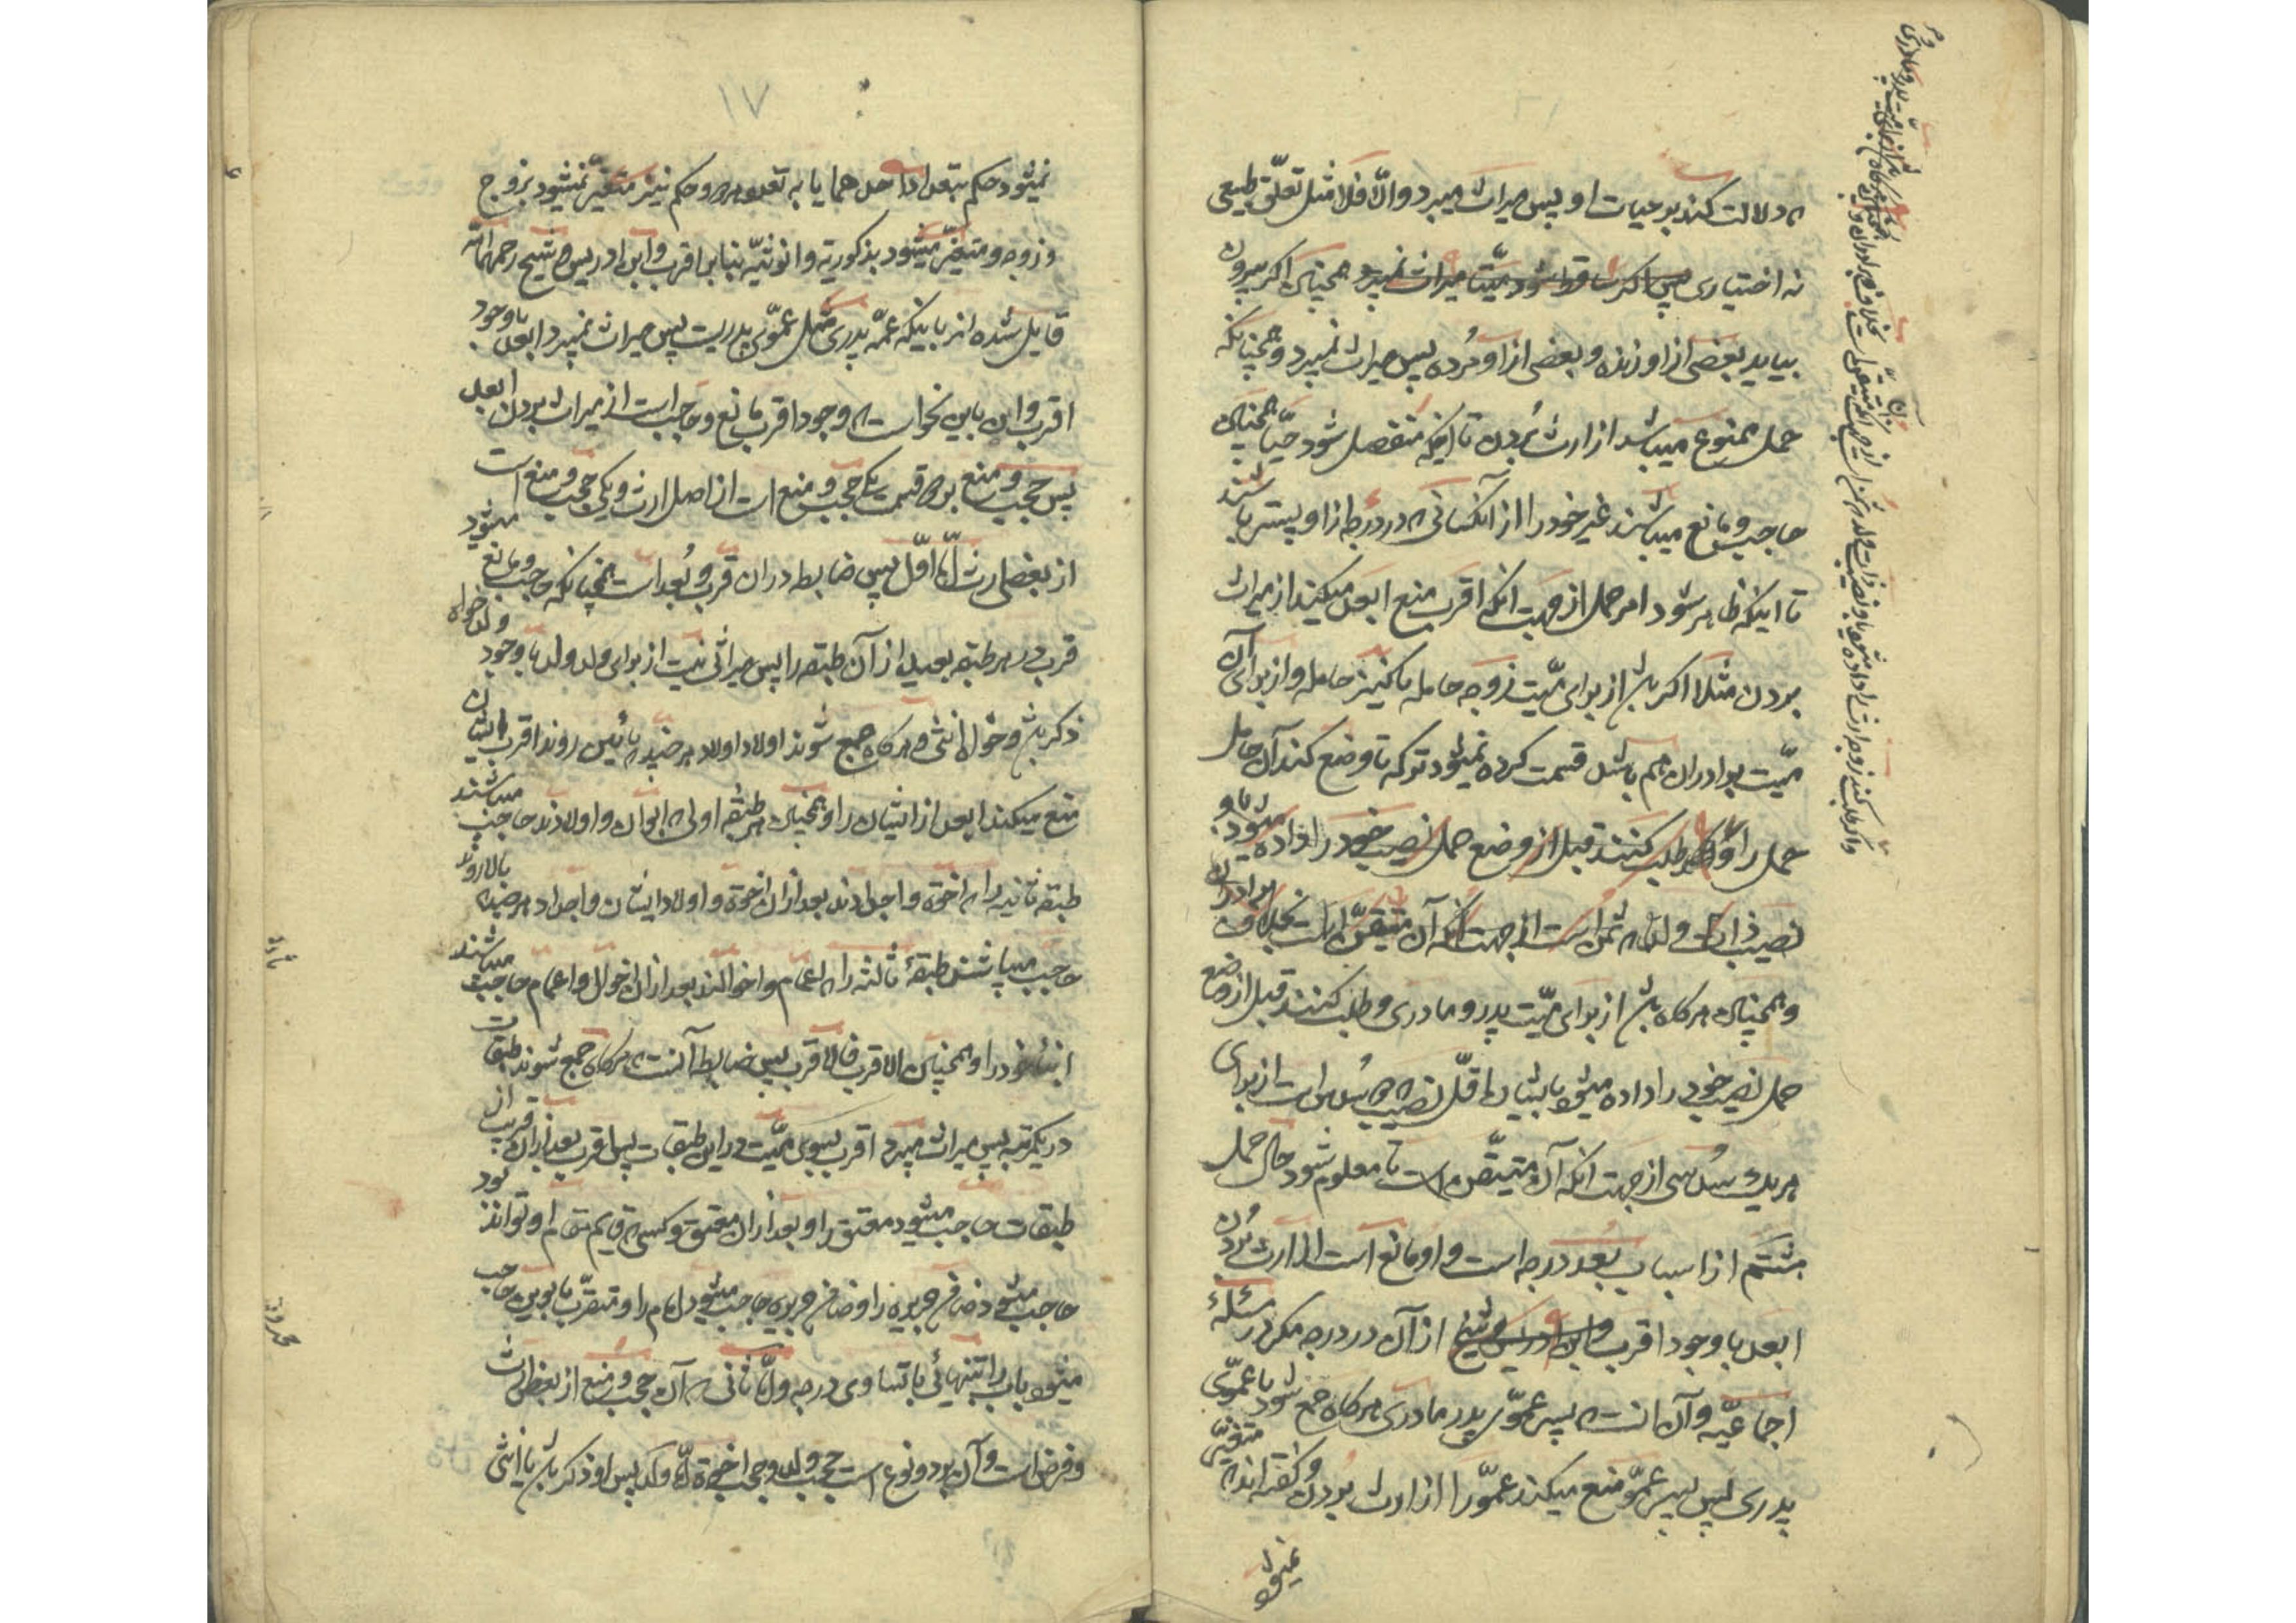 که دلالت کند بر حیات او پس میراث میبرد والّا فلا مثل تعلّق طبیعی
نه اختیاری پس اکر ساقط شود میّتا میراث نمیبرد همچنانکه اکر بیرون
بیاید بعضی از او زنده و بعضی از او مُرده پس میراث نمیبرد و همچنانکه
حمل ممنوع میباشد از ارث بُردن تا اینکه منفصل شود حیّا همچنان
حاجب و مانع میباشد غیر خود را از آنکسانی که در درجه از او پستر باشند
تا اینکه ظاهر شود امر حمل از جهت انکه اقرب منع ابعد میکند از میراث
بردن مثلا اکر باشد از برای میّت زوجه حامله یا کنیز حامله و از برای آن
میّت برادران هم باشد قسمت کرده نمیشود ترکه تا وضع کند آن حامل
حمل را و اکر طلب کنند قبل از وضع حمل نصیب خود را داده میشود باو
نصیب ذات ولد که ثمن است از جهت انکه آن متیقّن است بخلاف برادران
و همچنان هرکاه باشد از برای میّت پدر و مادری و طلب کنند قبل از وضع
حمل نصیب خود را داده میشود بایشان اقلّ نصیب که سُدس است از برای
هریک سُدسی از جهت انکه آن متیقّن است تا معلوم شود حال حمل
هشتم از اسباب بُعد درجه است و او مانع است از ارث بُردن
ابعد با وجود اقرب و ابن ادریس و شیخ از آن در درجه مکر در مسئلهٔ
اجماعیّه و آن انست که پسر عموّی پدر مادری هرکاه جمع شود با عموّی
پدری پس پسر عموّ منع میکند عموّ را از ارث بردن و کفته اند که متغیّر
نمیشود
۱۷
نمیشود حکم بتعدد احدهما یا به تعدد هر دو و حکم نیز متغیّر نمیشود بزوج
و زوجه و متغیّر میشود بذکوریّه و انوثیّه بنا بر اقرب و ابن ادریس و شیخ رحمهما الله
قایل شده اند باینکه عمّه پدری مثل عموّی پدریست پس میراث نمیبرد ابعد با وجود
اقرب و این باین نحو است که وجود اقرب مانع و حاجب است از میراث بردن ابعد
پس حجب و منع بر دو قسمت یکی حجب و منع است از اصل ارث و یکی حجب و منع است
از بعض ارث امّا اوّل پس ضابطه در آن قرب و بُعد است همچنانکه حاجب و مانع میشود
قرب در هر طبقه بعید از آن طبقه را پس میراثی نیست از برای ولد ولد با وجود ولد خواه
ذکر باشد و خواه انثی و هرکاه جمع شوند اولاد اولاد هر چند که پائین روند اقرب ایشان
منع میکند ابعد از ایشان را و همچنان هر طبقه اولی که ابوان و اولادند حاجب میباشند
طبقه ثانیه را که اخوة و اجدادند بعد از آن اخوة و اولاد ایشان و اجداد هر چند که بالا روند
حاجب میباشند طبقهٔ ثالثه را که اعمام و اخوالند بعد از آن اخوال و اعمام حاجب میباشند
ابنای خود را و همچنان الاقرب فالاقرب پس ضابطه آنست که هرکاه جمع شوند طبقات
در یکمرتبه پس میراث میبرد اقرب بسوی میّت در این طبقات پس اقرب بعد از آن قریب از
طبقات حاجب میشود معتق را و بعد از آن معتق و کسی که قایم مقام او تواند بود
حاجب میشود ضامن جریره را و ضامن جریره حاجب میشود امام را و متقرّب بابوین حاجب
میشود باب را تنهائی با تساوی درجه و امّا ثانی که آن حجب و منع از بعض ارث
و فرض است و آن بر دو نوع است حجب ولد و حجب اخوة امّا ولد پس او ذکر باشد یا انثی